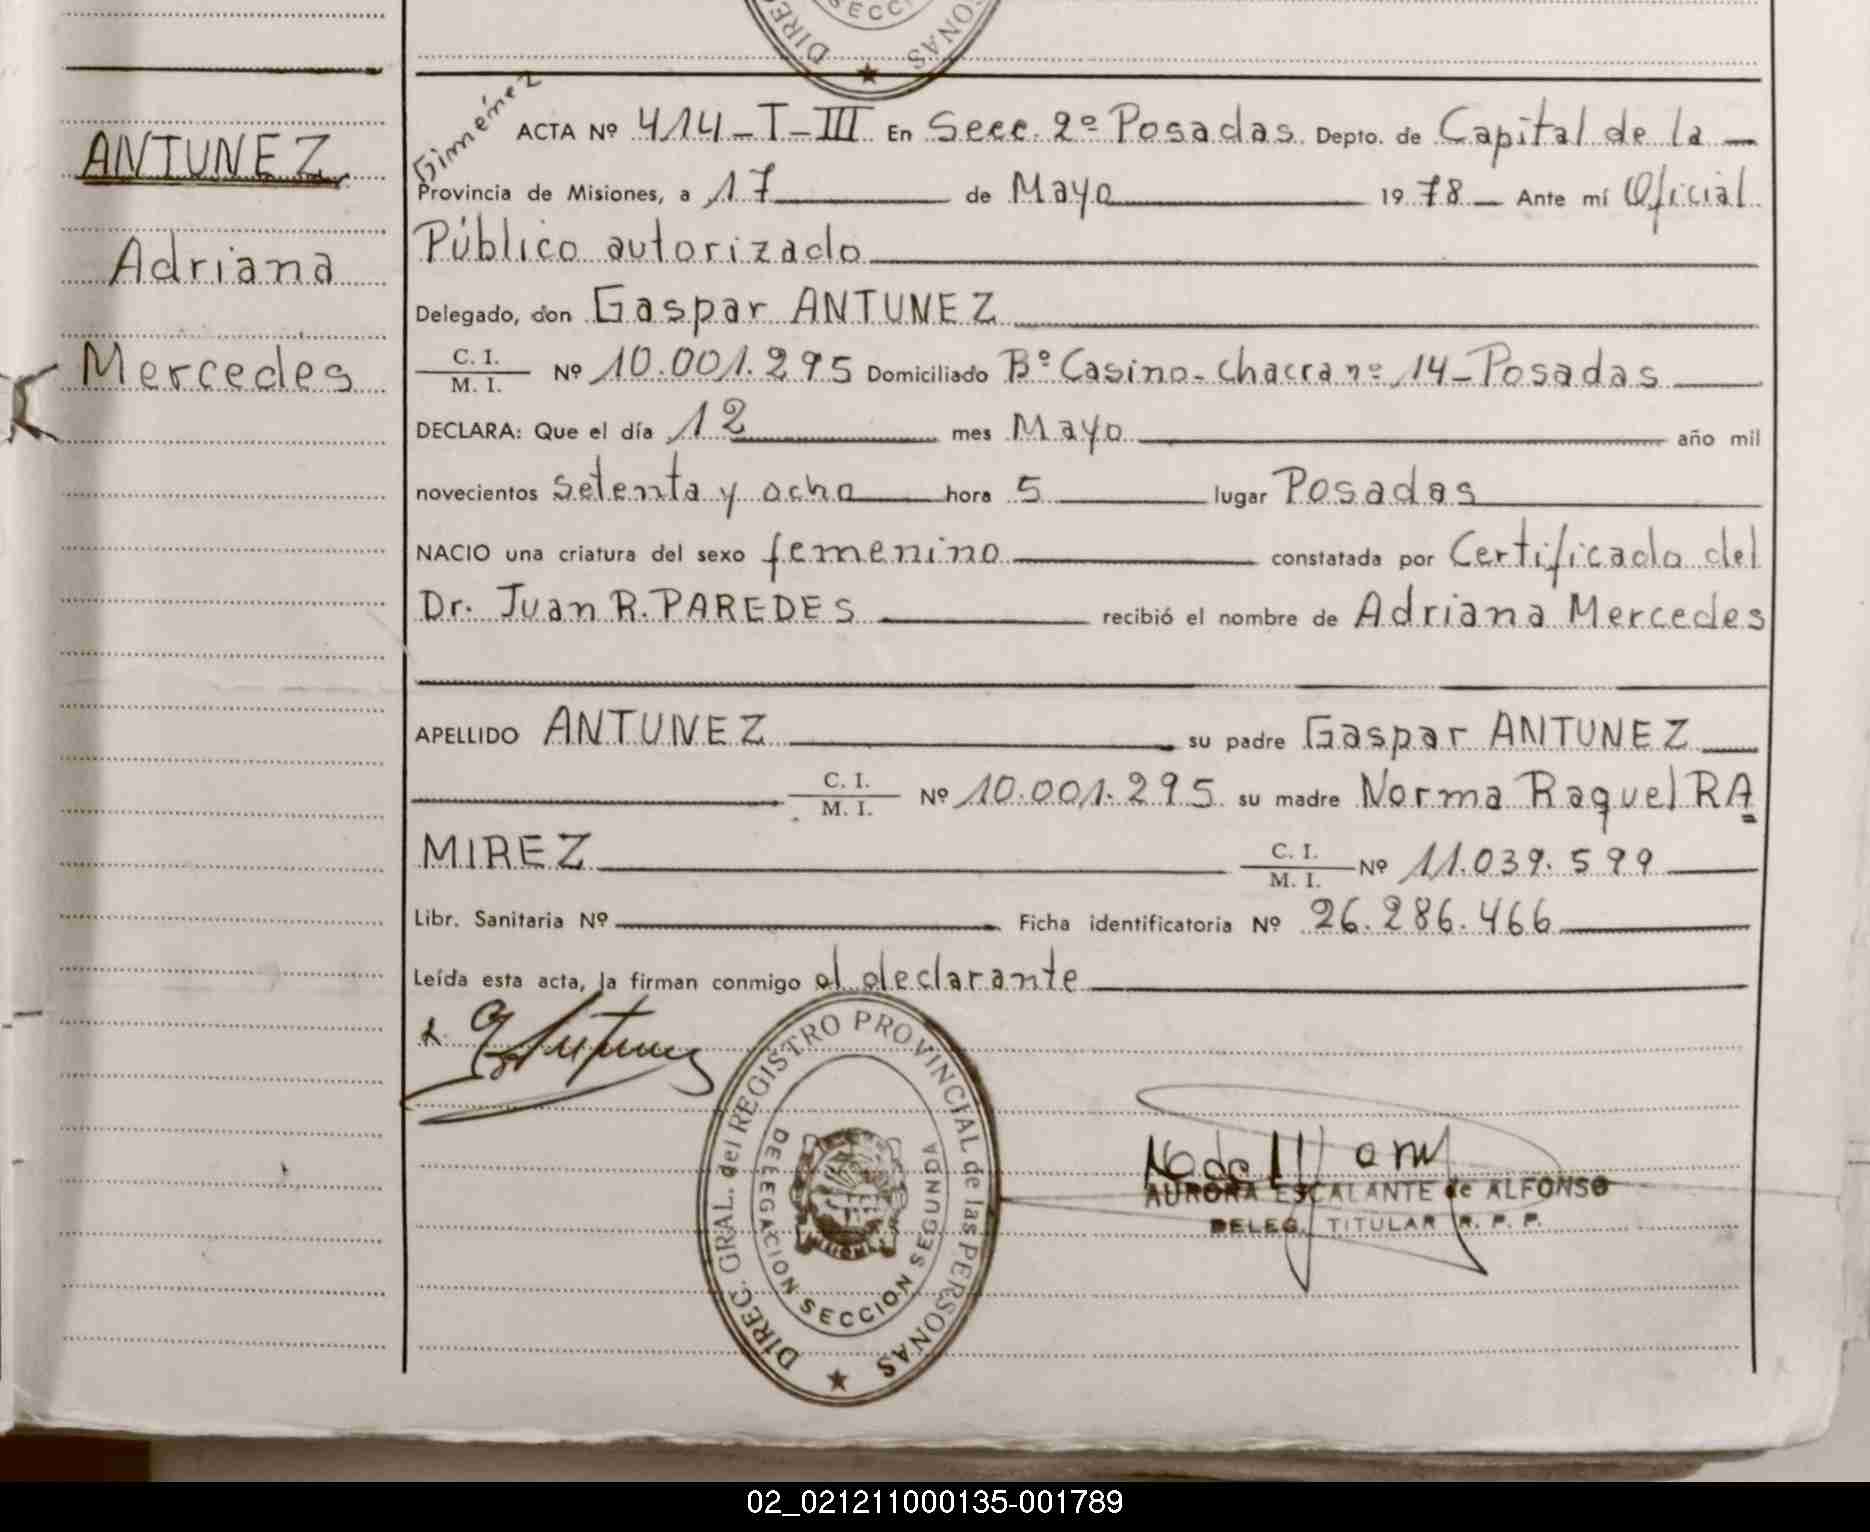 DIREC
SECCI
SONAS
Gimeńez
ANTUNEZ
Adriana
Mercedes
ACTA Nº 414-T-III En Secc. 2º Posadas Depto. de Capital de la
Provincia de Misiones, a 17 de Mayo 1978 Ante mí Oficial
Público autorizado
Delegado, don Gaspar ANTUNEZ
C. I.
M. I. Nº 10.001.295 Domiciliado Bº Casino-chacra nº 14-Posadas
DECLARA: Que el día 12 mes Mayo año mil
novecientos setenta y ocho hora 5 lugar Posadas
NACIO una criatura del sexo femenino constatada por Certificado del
Dr. Juan R. PAREDES recibió el nombre de Adriana Mercedes
APELLIDO ANTUNEZ su padre Gaspar ANTUNEZ
C. I.
M. I. Nº 10.001.295 su madre Norma Raquel RA
MIREZ C. I.
M. I. Nº 11.039.599
Libr. Sanitaria Nº Ficha identificatoria Nº 26.286.466
Leída esta acta, la firman conmigo el declarante
DIREC. GRAL. del REGISTRO PROVINCIAL de las PERSONAS
DELEGACION SECCION SEGUNDA
MISIONES
AURORA ESCALANTE de ALFONSO
DELEG. TITULAR R. P. P.
02_021211000135-001789